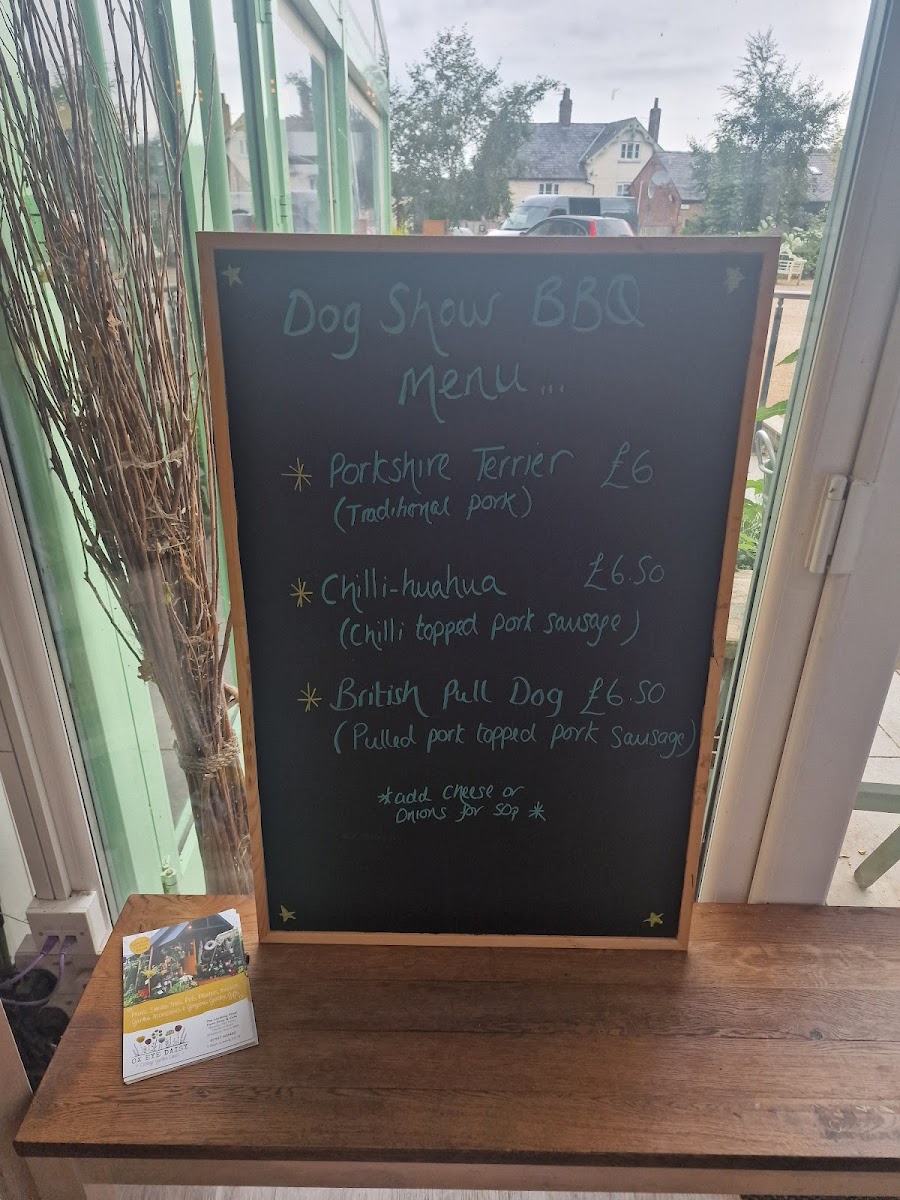 Dog Show BBQ
Menu...
Porkshire Terrier £6
(Traditional pork)
Chilli-huahua £6.50
(Chilli topped pork sausage)
British Pull Dog £6.50
(Pulled pork topped pork sausage)
*add cheese or
onions for 50p *
OX EYE DAISY